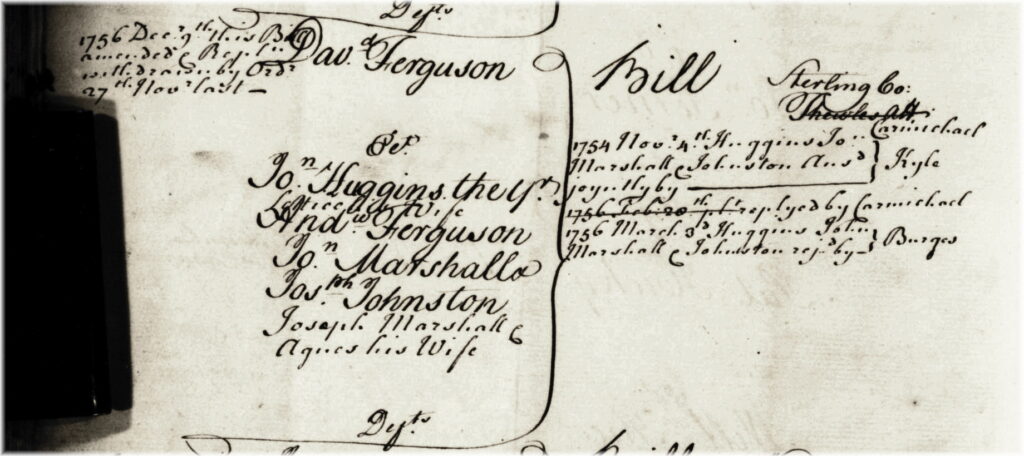 Defts
1756 Decr. 9th this Bill
amended & Repl.
withdrawn by Ordr
27th Novr last —
Davd. Ferguson
Bill
Sterling Co:
Thewles Att
Pet.
Jon. Huggins the yr.
Lettice his Wife
Andw. Ferguson
Jon. Marshall &
Josph. Johnston
Joseph Marshall &
Agnes his Wife
1754 Novr. 4th. Huggins Jon.
Marshall & Johnston Ansd
joyntly by
Carmichael
Kyle
1756 Feb. 20th replyed by Carmichael
1756 March 3d. Huggins John
Marshall & Johnston rejd. by
Burges
Defts
Bill